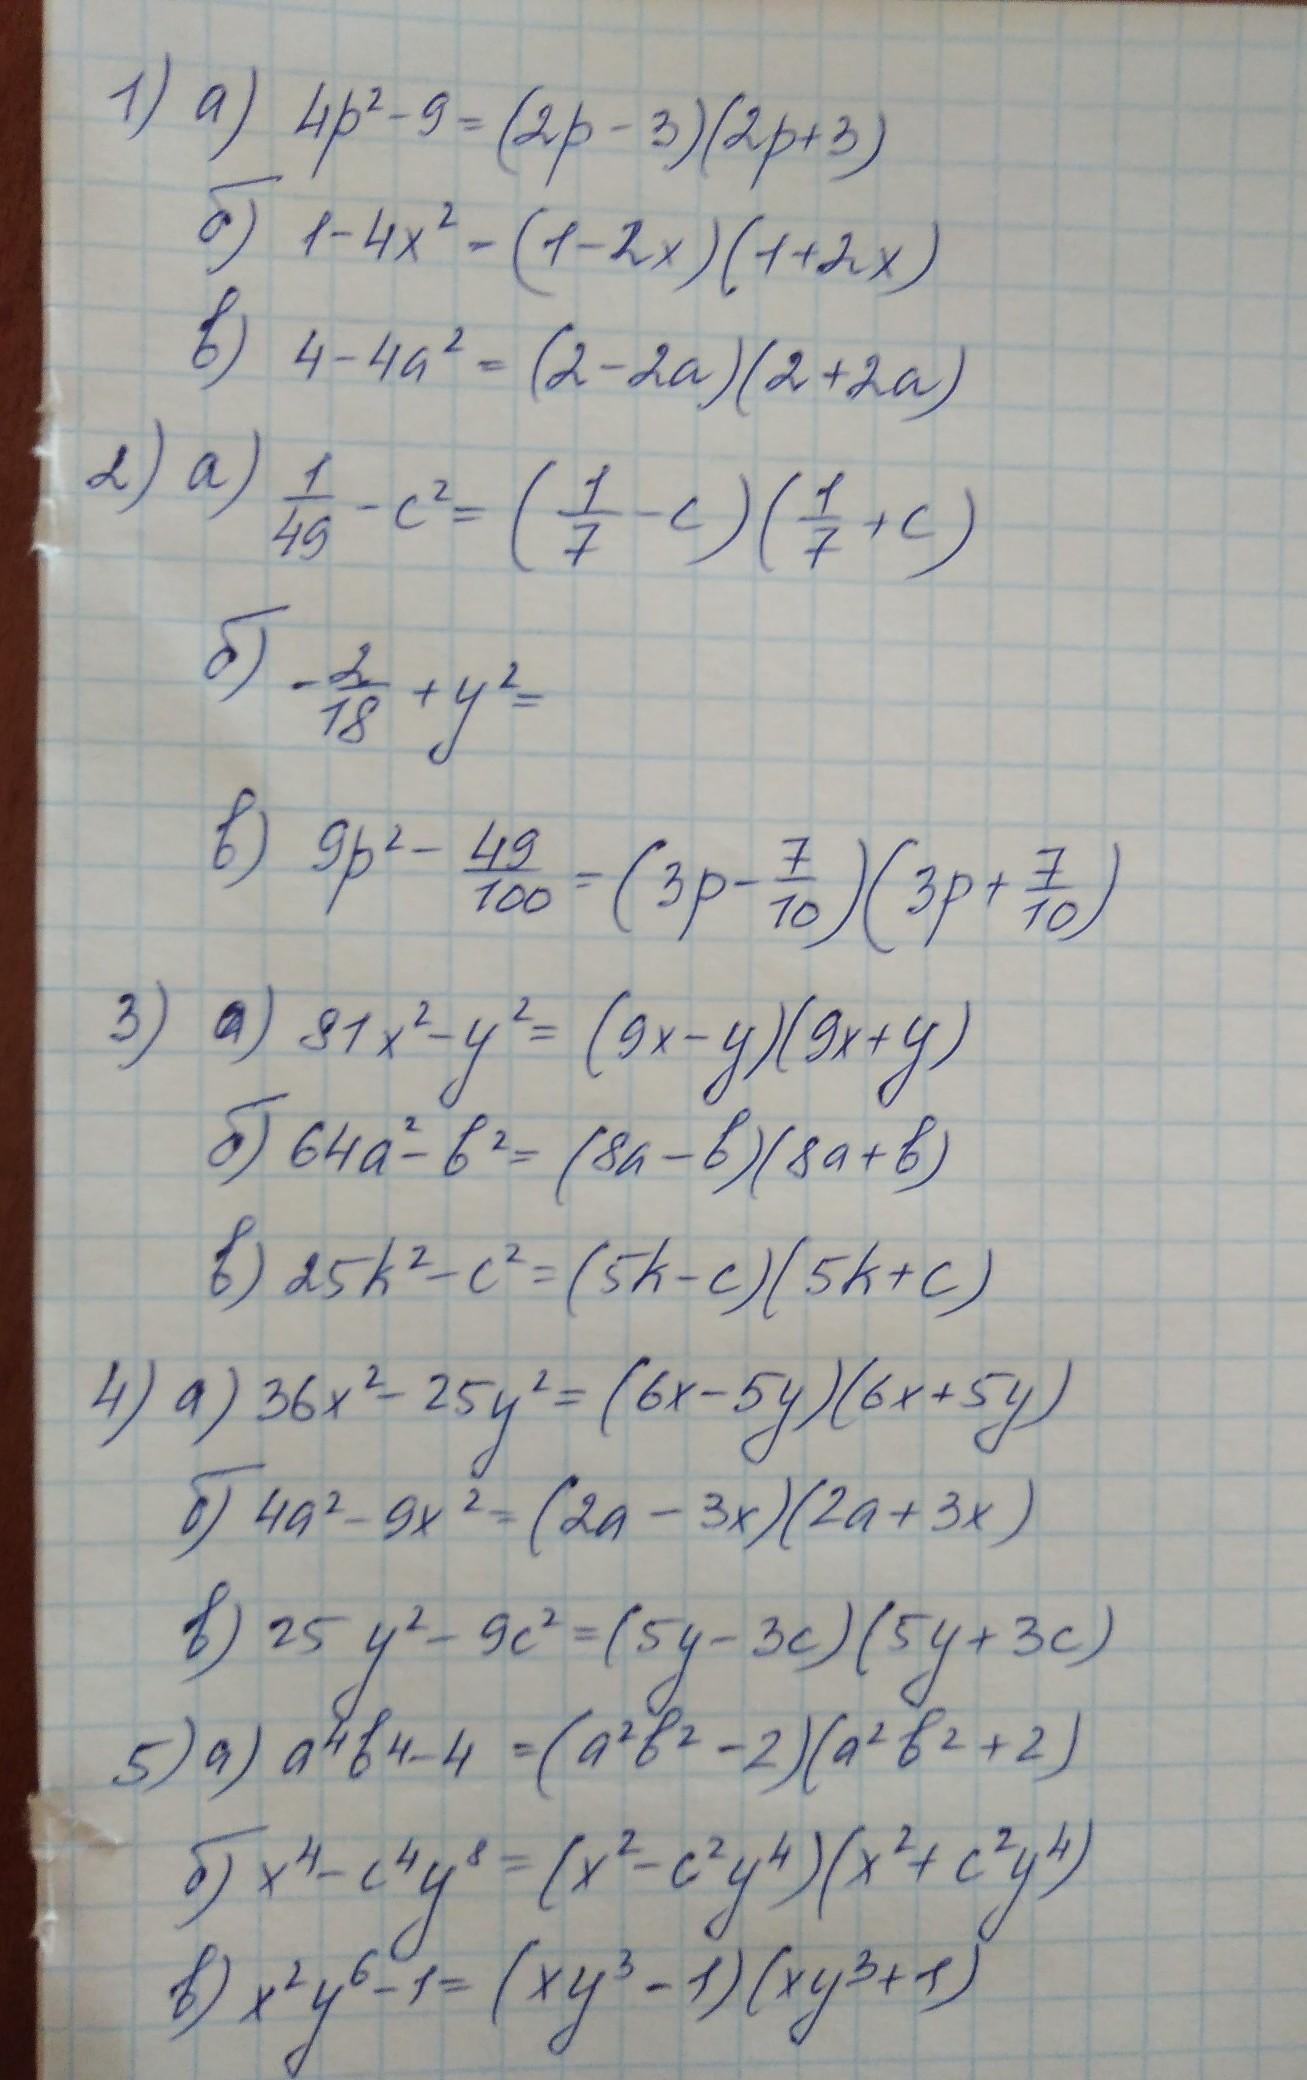 1) а) 4p² - 9 = (2p - 3)(2p + 3)
б) 1 - 4x² = (1 - 2x)(1 + 2x)
в) 4 - 4a² = (2 - 2a)(2 + 2a)
2) а) 1/49 - c² = (1/7 - c)(1/7 + c)
б) -2/18 + y² =
в) 9p² - 49/100 = (3p - 7/10)(3p + 7/10)
3) а) 81x² - y² = (9x - y)(9x + y)
б) 64a² - b² = (8a - b)(8a + b)
в) 25k² - c² = (5k - c)(5k + c)
4) а) 36x² - 25y² = (6x - 5y)(6x + 5y)
б) 4a² - 9x² = (2a - 3x)(2a + 3x)
в) 25y² - 9c² = (5y - 3c)(5y + 3c)
5) а) a⁴b⁴ - 4 = (a²b² - 2)(a²b² + 2)
б) x⁴ - c⁴y⁸ = (x² - c²y⁴)(x² + c²y⁴)
в) x²y⁶ - 1 = (xy³ - 1)(xy³ + 1)